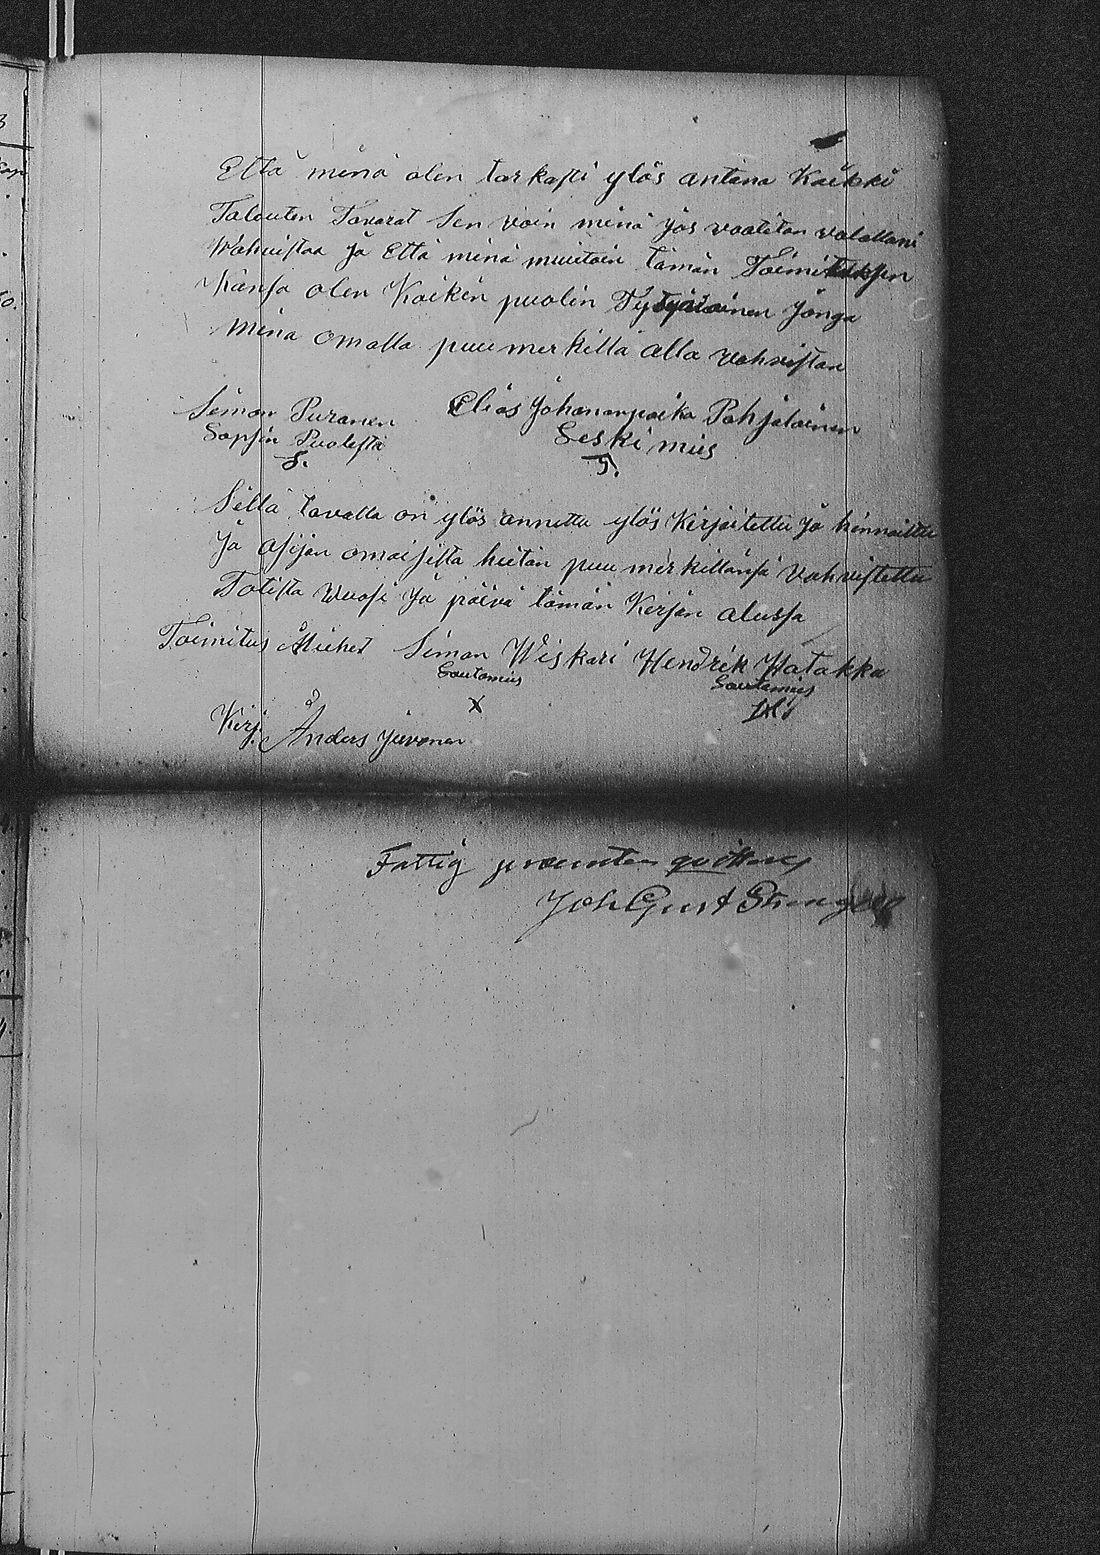 Että minä olen tarkasti ylös antana Kaikki
Talouten Tavarat Sen voin minä jos vaatitan valallani
Wahvistaa ja Että minä muutoin tämän Toimituksen
Kansa olen Kaikin puolin Tytyväinen jonga
minä omalla puumerkillä alla vahvistan
Simon Puranen Elias Johananpoika Pohjalainen
Lapsin Puolesta Leski mies
Sillä tavalla on ylös annettu ylös Kirjoitettu ja hinnoittu
ja asijan omaisista heitän puu merkillänsä vahvistettu
Totista Wuosi ja päivä tämän Kirjan alussa
Toimitus Miehet Simon Wiskari Hendrik Hatakka
Lautamies Lautamies
X
Kirj. Anders Juvonen
Fattig procenten qvitteras
Joh Gust